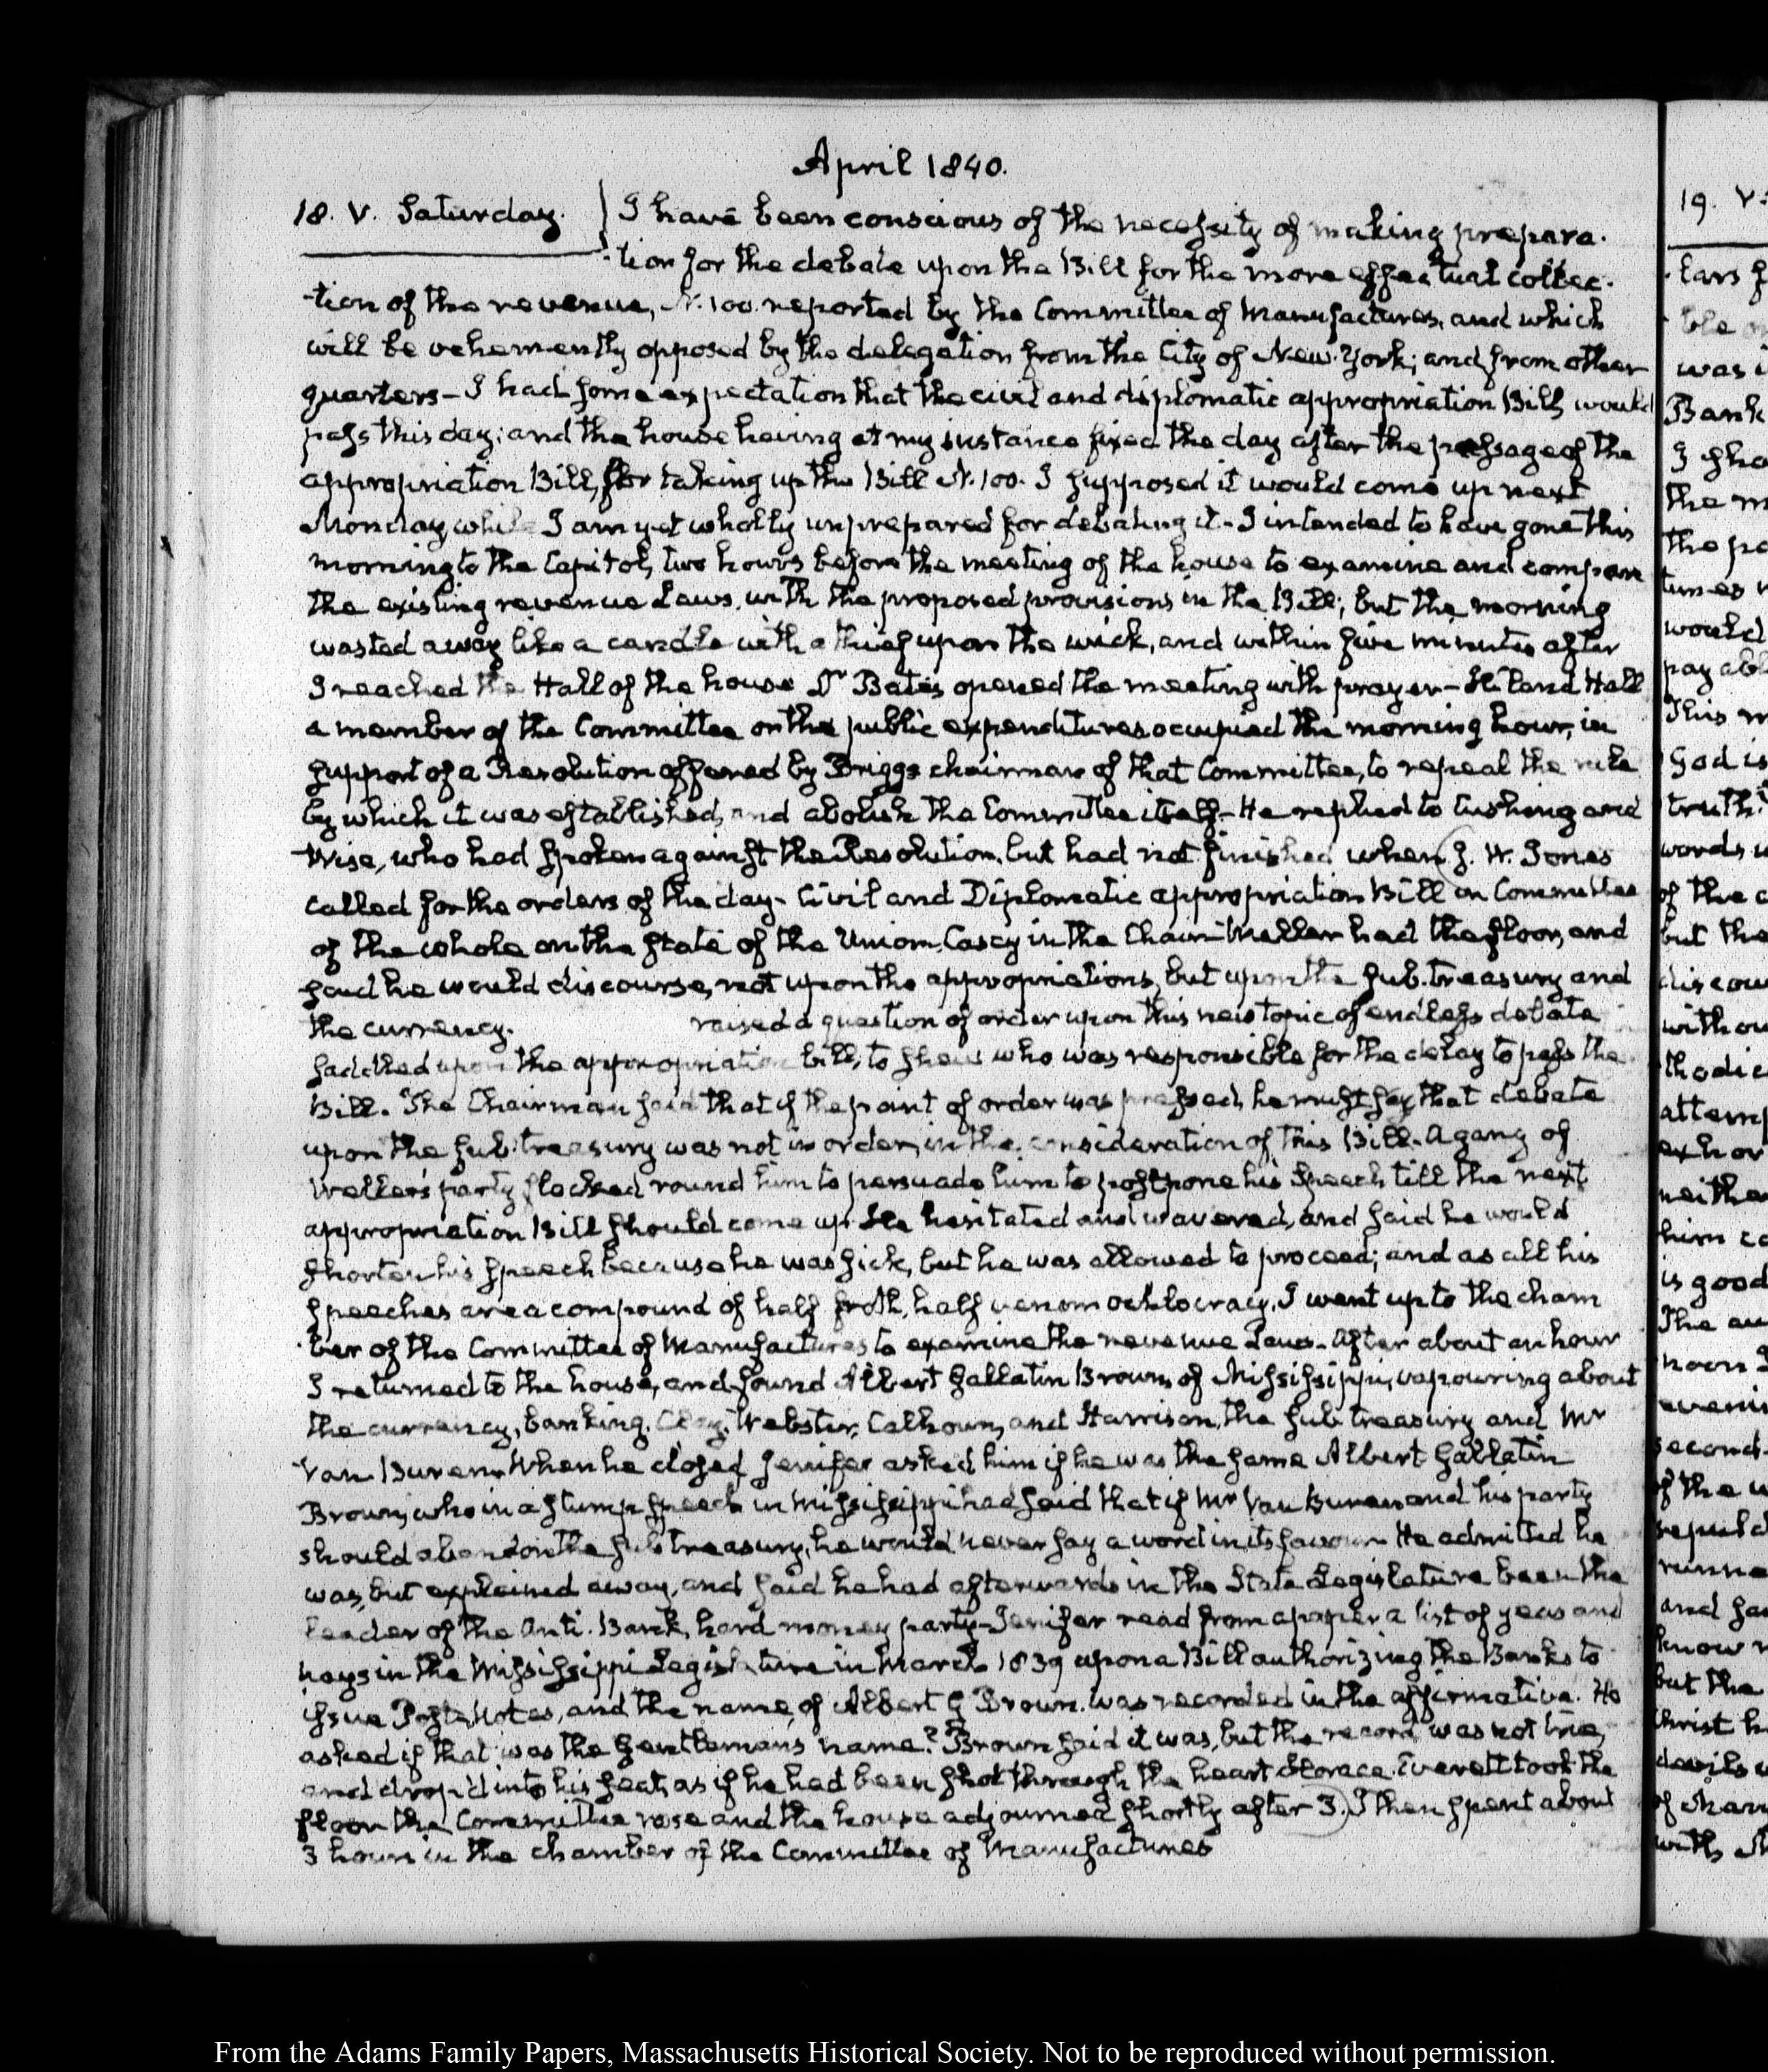 April 1840.
18. V. Saturday. I have been conscious of the necessity of making prepara-
-tion for the debate upon the Bill for the more effectual collec-
-tion of the revenue, N. 100. reported by the Committee of Manufactures, and which
will be vehemently opposed by the delegation from the City of New-York; and from other
quarters— I had some expectation that the civil and diplomatic appropriation Bill would
pass this day; and the house having at my instance fixed the day after the passage of the
appropriation Bill, for taking up the Bill N. 100. I supposed it would come up next
Monday, while I am yet wholly unprepared for debating it— I intended to have gone this
morning to the Capitol, two hours before the meeting of the house to examine and compare
the existing revenue Laws, with the proposed provisions in the Bill; but the morning
wasted away like a candle with a thief upon the wick, and within five minutes after
I reached the Hall of the house Dr Bates opened the meeting with prayer— Hiland Hall
a member of the Committee on the public expenditures occupied the morning hour, in
support of a Resolution offered by Briggs chairman of that Committee, to repeal the rule
by which it was established, and abolish the Committee itself— He replied to Cushing and
Wise, who had spoken against the Resolution, but had not finished when J. W. Jones
called for the orders of the day— Civil and Diplomatic appropriation Bill in Committee
of the whole on the state of the Union, Casey in the Chair— Weller had the floor, and
said he would discourse, not upon the appropriations, but upon the sub-treasury and
the currency. raised a question of order upon this new topic of endless debate
saddled upon the appropriation bill, to shew who was responsible for the delay to pass the
Bill. The Chairman said that if the point of order was pressed, he must say that debate
upon the sub-treasury was not in order, in the consideration of this Bill— A gang of
Weller's party flocked round him to persuade him to postpone his Speech till the next
appropriation Bill should come up. He hesitated and wavered, and said he would
shorten his speech because he was sick, but he was allowed to proceed; and as all his
speeches are a compound of half froth, half venom ochlocracy, I went up to the cham
-ber of the Committee of Manufactures to examine the revenue Laws— After about an hour
I returned to the house, and found Albert Gallatin Brown, of Mississippi, vapouring about
the currency, banking, Clay, Webster, Calhoun, and Harrison, the sub treasury and Mr
Van Buren. When he closed Jenifer asked him if he was the same Albert Gallatin
Brown, who in a stump speech in Mississippi had said that if Mr Van Buren and his party
should abandon the sub treasury, he would never say a word in its favour— He admitted he
was, but explained away, and said he had afterwards in the State Legislature been the
leader of the Anti-Bank, hard money party— Jenifer read from a paper a list of yeas and
nays in the Mississippi Legislature in March 1839 upon a Bill authorizing the Banks to
issue Post-Notes, and the name of Albert G Brown was recorded in the affirmative. He
asked if that was the Gentleman's name? Brown said it was, but the record was not true,
and drop'd into his seat, as if he had been shot through the heart Horace Everett took the
floor the Committee rose and the house adjourned shortly after 3. I then spent about
3 hours in the chamber of the Committee of Manufactures
19. V.
From the Adams Family Papers, Massachusetts Historical Society. Not to be reproduced without permission.